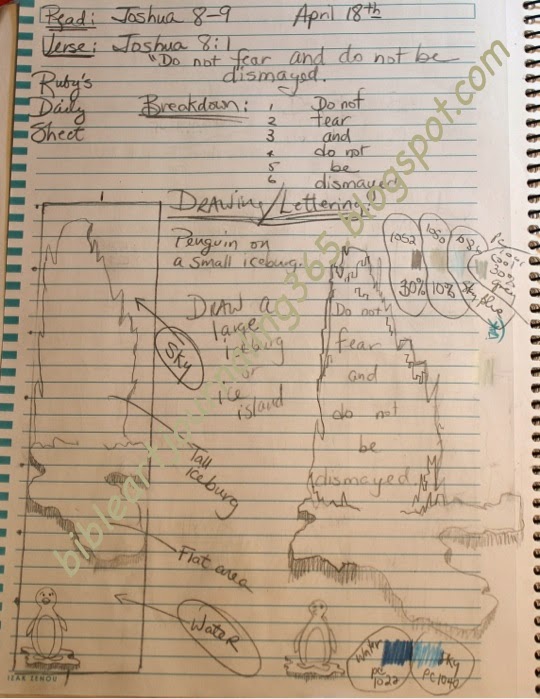 Read: Joshua 8-9 April 18th
Verse: Joshua 8:1
"Do not fear and do not be
dismayed.
Ruby's
Daily
Sheet
Breakdown: 1 Do not
2 fear
3 and
4 do not
5 be
6 dismayed
Drawing/Lettering:
Penguin on
a small iceburg.
Draw a
large
iceburg
or
ice
island
1052
30%
1050
10%
Sky Blue
Cool
30%
grey
Sky
Tall
iceburg
Flat area
Water
Do not
fear
and
do not
be
dismayed.
Water
PC
1022
Sky
PC1040
IZAK ZENOU
bibleartjournaling365.blogspot.com